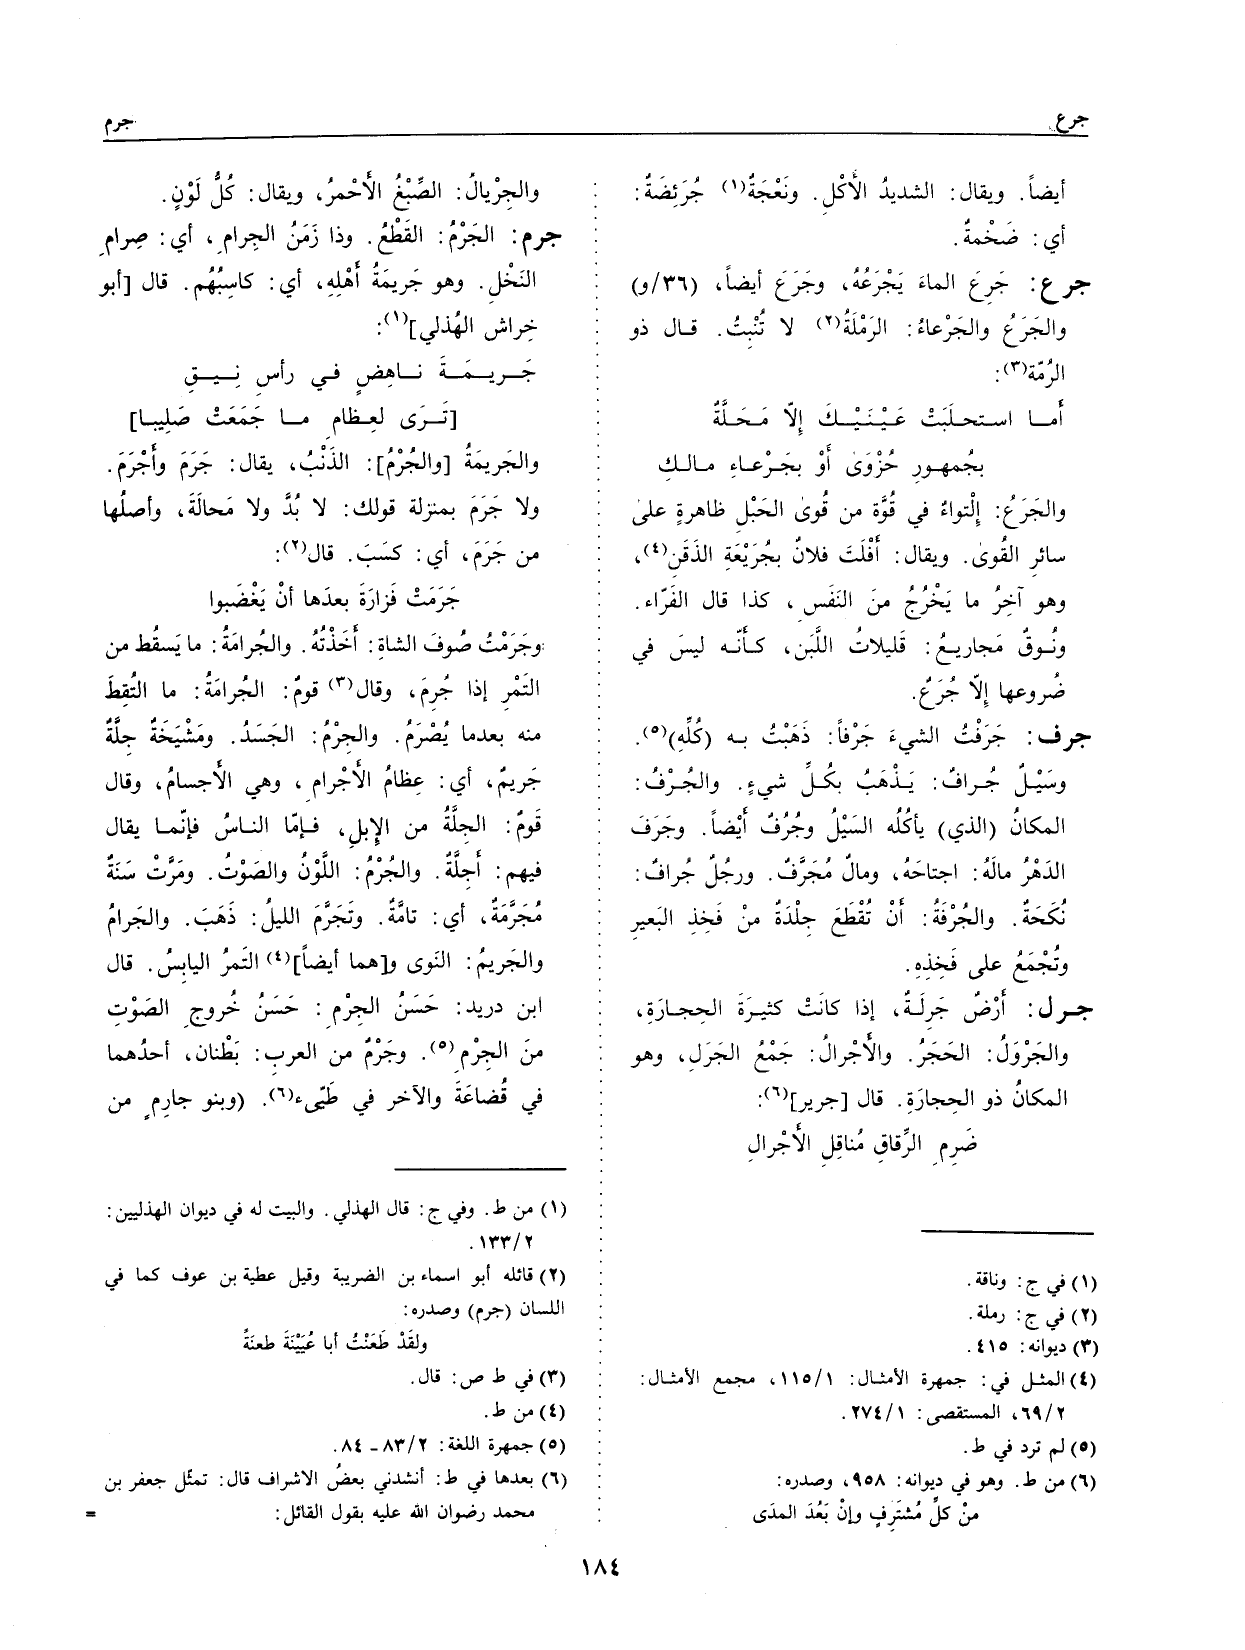 جرع
جرم
أيضاً. ويقال: الشديدُ الأَكْلِ. ونَعْجَةٌ(١) جُرَئِضَةٌ:
أي: ضَخْمةٌ.
جرع: جَرِعَ الماءَ يَجْرَعُهُ، وجَرَعَ أيضاً، (٣٦/و)
والجَرَعُ والجَرْعاءُ: الرَمْلَةُ(٢) لا تُنْبِتُ. قـال ذو
الرُمّة(٣):
أَمـا استحلَبَتْ عَيْنَيْـكَ إلاّ مَحَلَّةٌ
بجُمهـورِ حُزْوَىٰ أَوْ بجَرْعـاءِ مالـكِ
والجَرَعُ: إلْتواءٌ في قُوَّة من قُوىٰ الحَبْل ظاهرةٍ علىٰ
سائرِ القُوىٰ. ويقال: أَفْلَتَ فلانٌ بجُرَيْعَةِ الذَقَن(٤)،
وهو آخِرُ ما يَخْرُجُ منَ النَفَسِ، كذا قال الفَرّاء.
ونُـوقٌ مَجاريـعُ: قَليلاتُ اللَّبَن، كـأنّـه ليسَ في
ضُروعها إلاّ جُرَعٌ.
جرف: جَرَفْتُ الشيءَ جَرْفاً: ذَهَبْتُ بـه (كُلِّهِ)(٥).
وسَيْـلٌ جُـرافٌ: يَـذْهَبُ بكُـلِّ شيءٍ. والجُـرْفُ:
المكانُ (الذي) يأكُلُه السَيْلُ وجُرُفٌ أَيْضاً. وجَرَفَ
الدَهْرُ مالَهُ: اجتاحَهُ، ومالٌ مُجَرَّفٌ. ورجُلٌ جُرافٌ:
نُكَحَةٌ. والجُرْفَةُ: أنْ تُقْطَعَ جِلْدَةٌ منْ فَخِذِ البَعيرِ
وتُجْمَعُ على فَخِذِهِ.
جـرل: أَرْضٌ جَرِلَـةٌ، إذا كانَتْ كثيـرَةَ الحِجـارَةِ،
والجَرْوَلُ: الحَجَرُ. والأَجْرالُ: جَمْعُ الجَرَلِ، وهو
المكانُ ذو الحِجارَةِ. قال [جرير](٦):
ضَرِمِ الرِّقاقِ مُناقِلِ الأَجْرالِ
(١) في ج: وناقة.
(٢) في ج: رملة.
(٣) ديوانه: ٤١٥.
(٤) المثـل في: جمهرة الأمثـال: ١١٥/١، مجمع الأمثـال:
٦٩/٢، المستقصى: ٢٧٤/١.
(٥) لم ترد في ط.
(٦) من ط. وهو في ديوانه: ٩٥٨، وصدره:
منْ كلِّ مُشتَرِفٍ وإنْ بَعُدَ المدَى
والجِرْيالُ: الصِّبْغُ الأَحْمرُ، ويقال: كُلُّ لَوْنٍ.
جرم: الجَرْمُ: القَطْعُ. وذا زَمَنُ الجِرامِ، أي: صِرامِ
النَخْلِ. وهو جَريمَةُ أَهْلِهِ، أي: كاسِبُهُم. قال [أبو
خِراش الهُذلي](١):
جَـريـمَـةَ نـاهِضٍ فـي رأسِ نِـيـقٍ
[تَـرَى لعِـظامِ مـا جَمَعَتْ صَلِيبـا]
والجَريمَةُ [والجُرْمُ]: الذَنْبُ، يقال: جَرَمَ وأَجْرَمَ.
ولا جَرَمَ بمنزلة قولك: لا بُدَّ ولا مَحالَةَ، وأصلُها
من جَرَمَ، أي: كسَبَ. قال(٢):
جَرَمَتْ فَزارَةَ بعدَها أنْ يَغْضَبوا
وجَرَمْتُ صُوفَ الشاةِ: أَخَذْتُهُ. والجُرامَةُ: ما يَسقُط من
التَمْرِ إذا جُرِمَ، وقال(٣) قومٌ: الجُرامَةُ: ما التُقِطَ
منه بعدما يُصْرَمُ. والجِرْمُ: الجَسَدُ. ومَشْيَخَةٌ جِلَّةٌ
جَريمٌ، أي: عِظامُ الأَجْرامِ، وهي الأجسامُ، وقال
قَومٌ: الجِلَّةُ من الإبِلِ، فـإمّا الناسُ فإنّمـا يقال
فيهم: أَجِلَّةٌ. والجُرْمُ: اللَّوْنُ والصَوْتُ. ومَرَّتْ سَنَةٌ
مُجَرَّمَةٌ، أي: تامَّةٌ. وتَجَرَّمَ الليلُ: ذَهَبَ. والجَرامُ
والجَريمُ: النَوى و[هما أيضاً](٤) التَمرُ اليابِسُ. قال
ابن دريد: حَسَنُ الجِرْمِ: حَسَنُ خُروجِ الصَوْتِ
منَ الجِرْمِ(٥). وجَرْمٌ من العربِ: بَطْنان، أحدُهما
في قُضاعَةَ والآخر في طَيّىء(٦). (وبنو جارِمٍ من
(١) من ط. وفي ج: قال الهذلي. والبيت له في ديوان الهذليين:
١٣٣/٢.
(٢) قائله أبو اسماء بن الضريبة وقيل عطية بن عوف كما في
اللسان (جرم) وصدره:
ولقَدْ طَعَنْتُ أبا عُيَيْنَةَ طعنَةً
(٣) في ط ص: قال.
(٤) من ط.
(٥) جمهرة اللغة: ٨٣/٢ - ٨٤.
(٦) بعدها في ط: أنشدني بعضُ الاشراف قال: تمثّل جعفر بن
محمد رضوان الله عليه بقول القائل:
=
١٨٤